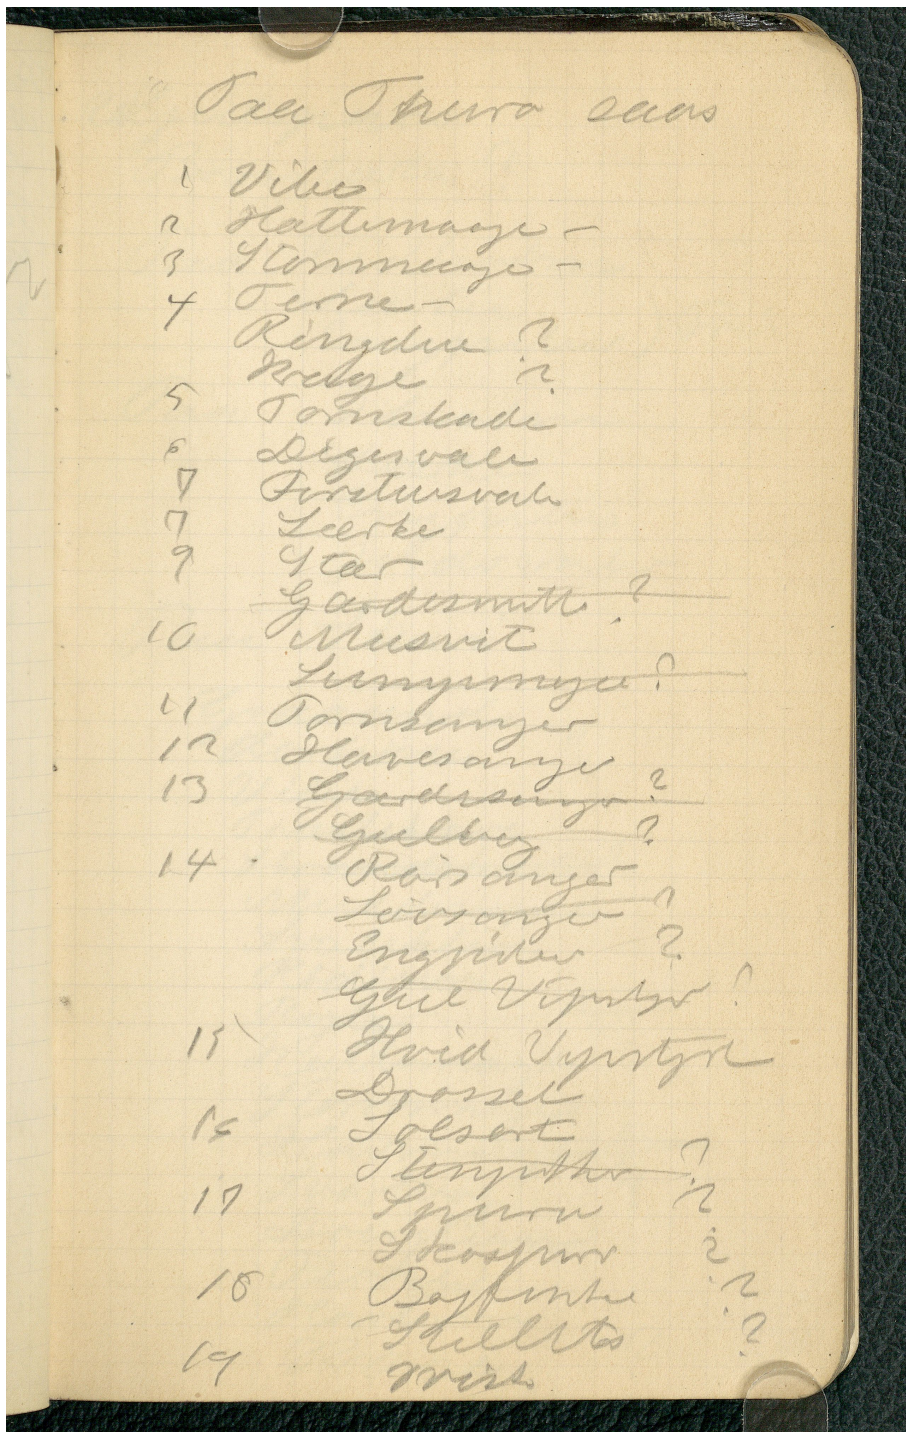 Paa Thurø saas
1 Vibe
2 Hættemaage –
3 Stormmaage –
4 Terne –
Ringdue ?
Krage ?
5 Tornskade
6 Digesvale
7 Forstuesvale
7 Lærke
9 Stær
Gærdesmutte ?
10 Musvit
?
11 Tornsanger
12 Havesanger
13 Gærdesanger ?
Gulbug ?
14 Rørsanger
Løvsanger ?
Engpiber ?
Gul Vipstjert ?
15 Hvid Vipstjert
Drossel
16 Solsort
Stenpikker ?
17 Spurv ?
Skospurv ?
18 Bogfinke ?
Stillits ?
19 Irisk